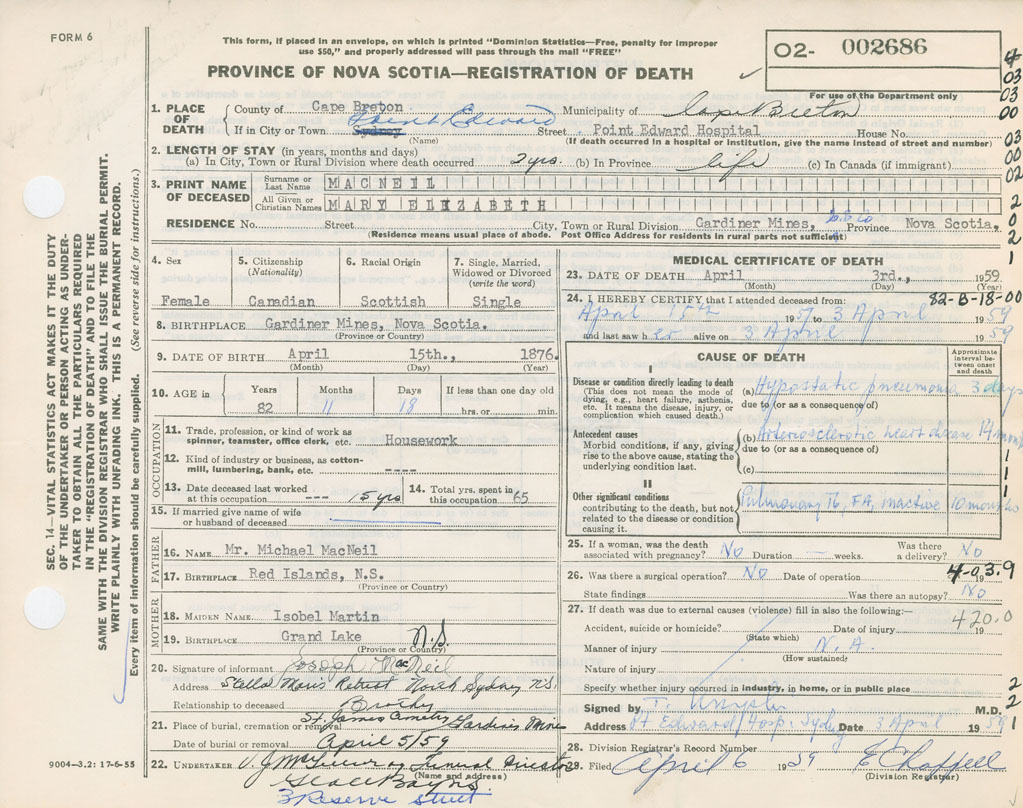 FORM 6
This form, if placed in an envelope, on which is printed "Dominion Statistics—Free, penalty for improper
use $50," and properly addressed will pass through the mail "FREE"
PROVINCE OF NOVA SCOTIA—REGISTRATION OF DEATH
02- 002686
For use of the Department only
4
03
03
00
03
00
02
2
0
2
1
1. PLACE OF DEATH County of Cape Breton Municipality of Cape Breton
If in City or Town Sydney Point Edward Street Point Edward Hospital House No.
(Name) (If death occurred in a hospital or institution, give the name instead of street and number)
2. LENGTH OF STAY (in years, months and days)
(a) In City, Town or Rural Division where death occurred 2 yrs. (b) In Province life (c) In Canada (if immigrant)
3. PRINT NAME OF DECEASED Surname or Last Name MACNEIL
All Given or Christian Names MARY ELIZABETH
RESIDENCE No. Street City, Town or Rural Division Gardiner Mines, Province Nova Scotia,
(Residence means usual place of abode. Post Office Address for residents in rural parts not sufficient)
SEC. 14—VITAL STATISTICS ACT MAKES IT THE DUTY
OF THE UNDERTAKER OR PERSON ACTING AS UNDER-
TAKER TO OBTAIN ALL THE PARTICULARS REQUIRED
IN THE "REGISTRATION OF DEATH" AND TO FILE THE
SAME WITH THE DIVISION REGISTRAR WHO SHALL ISSUE THE BURIAL PERMIT.
WRITE PLAINLY WITH UNFADING INK. THIS IS A PERMANENT RECORD.
Every item of information should be carefully supplied. (See reverse side for instructions.)
4. Sex 5. Citizenship (Nationality) 6. Racial Origin 7. Single, Married, Widowed or Divorced (write the word)
Female Canadian Scottish Single
8. BIRTHPLACE Gardiner Mines, Nova Scotia.
(Province or Country)
9. DATE OF BIRTH April 15th., 1876.
(Month) (Day) (Year)
10. AGE in Years Months Days If less than one day old
82 11 18 hrs. or min.
OCCUPATION
11. Trade, profession, or kind of work as
spinner, teamster, office clerk, etc. Housework
12. Kind of industry or business, as cotton-
mill, lumbering, bank, etc. ----
13. Date deceased last worked
at this occupation --- 15 yrs
14. Total yrs. spent in
this occupation 65
15. If married give name of wife
or husband of deceased
FATHER
16. NAME Mr. Michael MacNeil
17. BIRTHPLACE Red Islands, N.S.
(Province or Country)
MOTHER
18. MAIDEN NAME Isobel Martin
19. BIRTHPLACE Grand Lake N.S.
(Province or Country)
20. Signature of informant Joseph MacNeil
Address Stella Maris Retreat North Sydney N.S.
Relationship to deceased Brother
21. Place of burial, cremation or removal St. James Cemetery Gardiner Mines
Date of burial or removal April 5/59
22. UNDERTAKER Funeral Director
(Name and address)
Glace Bay N.S.
3 Reserve Street
9004—3.2: 17-6-55
MEDICAL CERTIFICATE OF DEATH
23. DATE OF DEATH April 3rd., 1959
(Month) (Day) (Year)
82-B-18-00
24. I HEREBY CERTIFY that I attended deceased from:
April 15th 1957 to 3 April 1959
and last saw her alive on 3 April 1959
CAUSE OF DEATH
Approximate interval between onset and death
I
Disease or condition directly leading to death
(This does not mean the mode of
dying, e.g., heart failure, asthenia,
etc. It means the disease, injury, or
complication which caused death.)
(a) Hypostatic pneumonia 3 days
due to (or as a consequence of)
Antecedent causes
Morbid conditions, if any, giving
rise to the above cause, stating the
underlying condition last.
(b) Arteriosclerotic heart disease 14 months
due to (or as a consequence of)
(c)
1
1
1
II
Other significant conditions
contributing to the death, but not
related to the disease or condition
causing it.
Pulmonary Tb, FA, inactive 10 months
25. If a woman, was the death
associated with pregnancy? No Duration — weeks. Was there
a delivery? No
26. Was there a surgical operation? No Date of operation 19
4-03.9
State findings Was there an autopsy? No
27. If death was due to external causes (violence) fill in also the following:—
420.0
Accident, suicide or homicide? Date of injury 19
(State which)
Manner of injury N.A.
(How sustained)
Nature of injury
Specify whether injury occurred in industry, in home, or in public place 2
Signed by M.D. 2
Address Pt Edward Hosp: Sydney Date 3 April 1959 1
28. Division Registrar's Record Number
29. Filed April 6 1959 E Chappell
(Division Registrar)